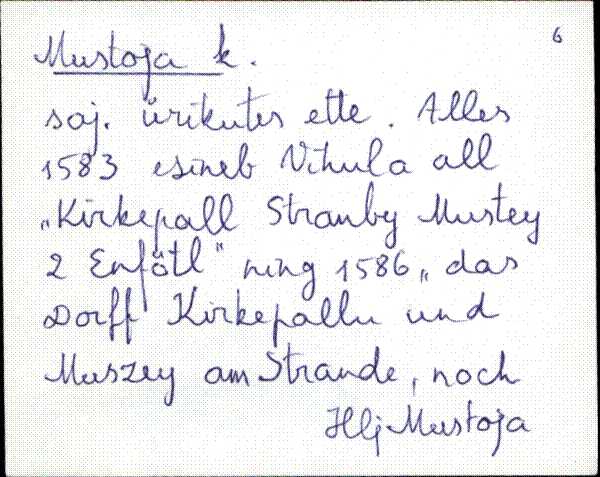 6
Mustoja k.
saj. ürikutes ette. Alles
1583 esineb Vihula all
„Kirkepall Stranby Mustey
2 Enfötl" ning 1586 „das
Dorff Kirkepallu und
Muszey am Strande, noch
Hlj Mustoja